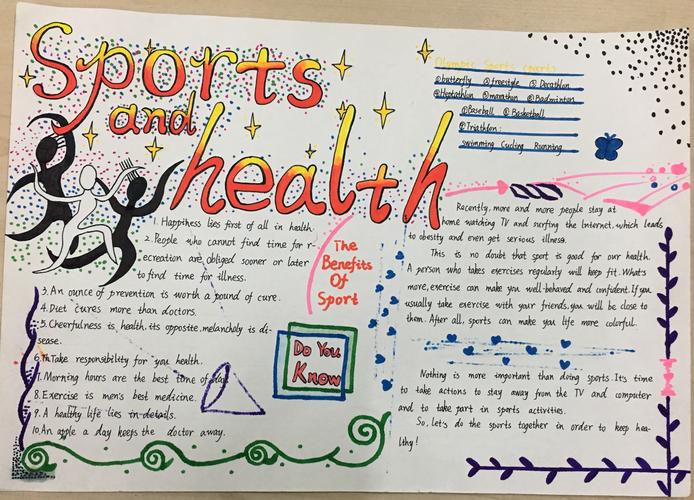 Sports
and
health
Olympic Sports events
①butterfly ②freestyle ③ Decathlon
④Heptathlon ⑤marathon ⑥Badminton
⑦Baseball ⑧ Basketball
⑨Triathlon:
swimming Cycling Running
1. Happiness lies first of all in health.
2. People who cannot find time for r-
ecreation are obliged sooner or later
to find time for illness.
3. An ounce of prevention is worth a pound of cure.
4. Diet cures more than doctors.
5. Cheerfulness is health, its opposite, melancholy is di-
sease.
6. Take responsibility for you health.
7. Morning hours are the best time of
8. Exercise is men's best medicine.
9. A healthy life lies in details.
10. An apple a day keeps the doctor away.
The
Benefits
Of
Sport
Do You
Know
Recently, more and more people stay at
home watching TV and surfing the Internet, which leads
to obesity and even get serious illness.
This is no doubt that sport is good for our health.
A person who takes exercises regularly will keep fit. What's
more, exercise can make you well-behaved and confident. If you
usually take exercise with your friends, you will be close to
them. After all, sports can make you life more colorful.
Nothing is more important than doing sports. It's time
to take actions to stay away from the TV and computer
and to take part in sports activities.
So, let's do the sports together in order to keep hea-
lthy!